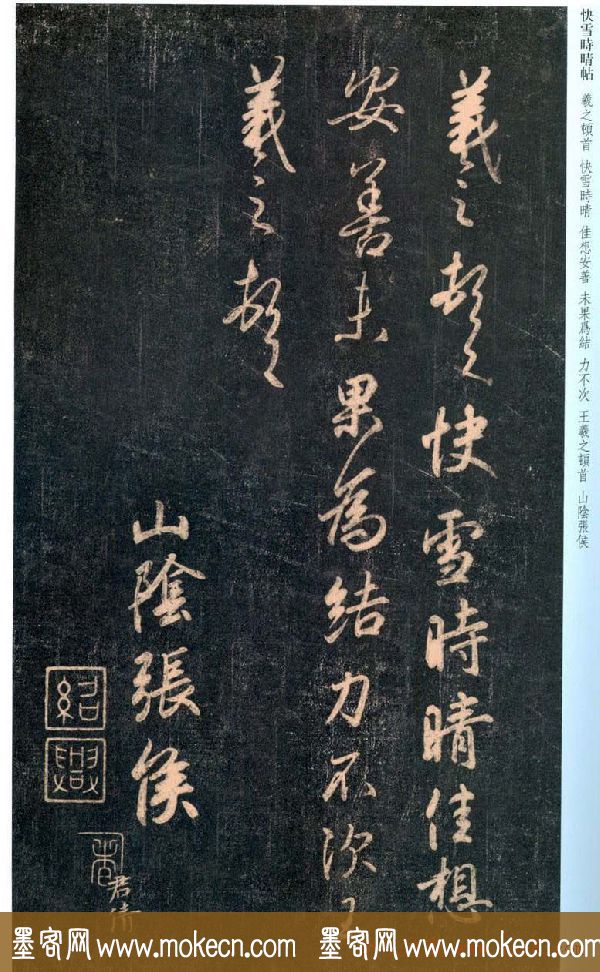 快雪時晴帖 羲之頓首 快雪時晴 佳想安善 未果爲結 力不次 王羲之頓首 山陰張侯
羲之頓首快雪時晴佳想
安善未果為結力不次王
羲之頓首
山陰張侯
紹興
君倩
墨客网 www.mokecn.com 墨客网 www.mokecn.com